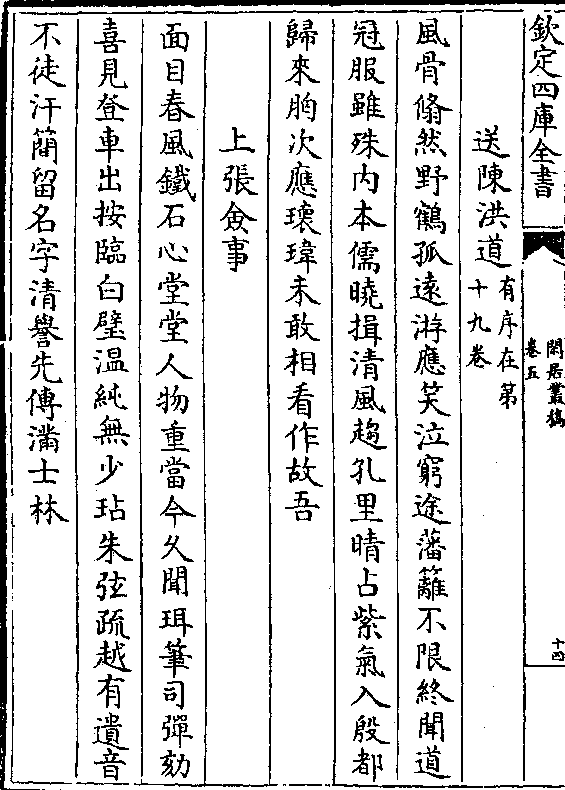 欽定四庫全書
閑居叢稿
卷五
十四
送陳洪道有序在第
十九卷
風骨翛然野鶴孤遠游應笑泣窮途藩籬不限終聞道
冠服雖殊内本儒曉揖清風趨孔里晴占紫氣入殷都
歸來胷次應瓌瑋未敢相看作故吾
上張僉事
面目春風鐵石心堂堂人物重當今久聞珥筆司彈劾
喜見登車出按臨白璧温純無少玷朱弦疏越有遺音
不徒汗簡留名字清譽先傳滿士林